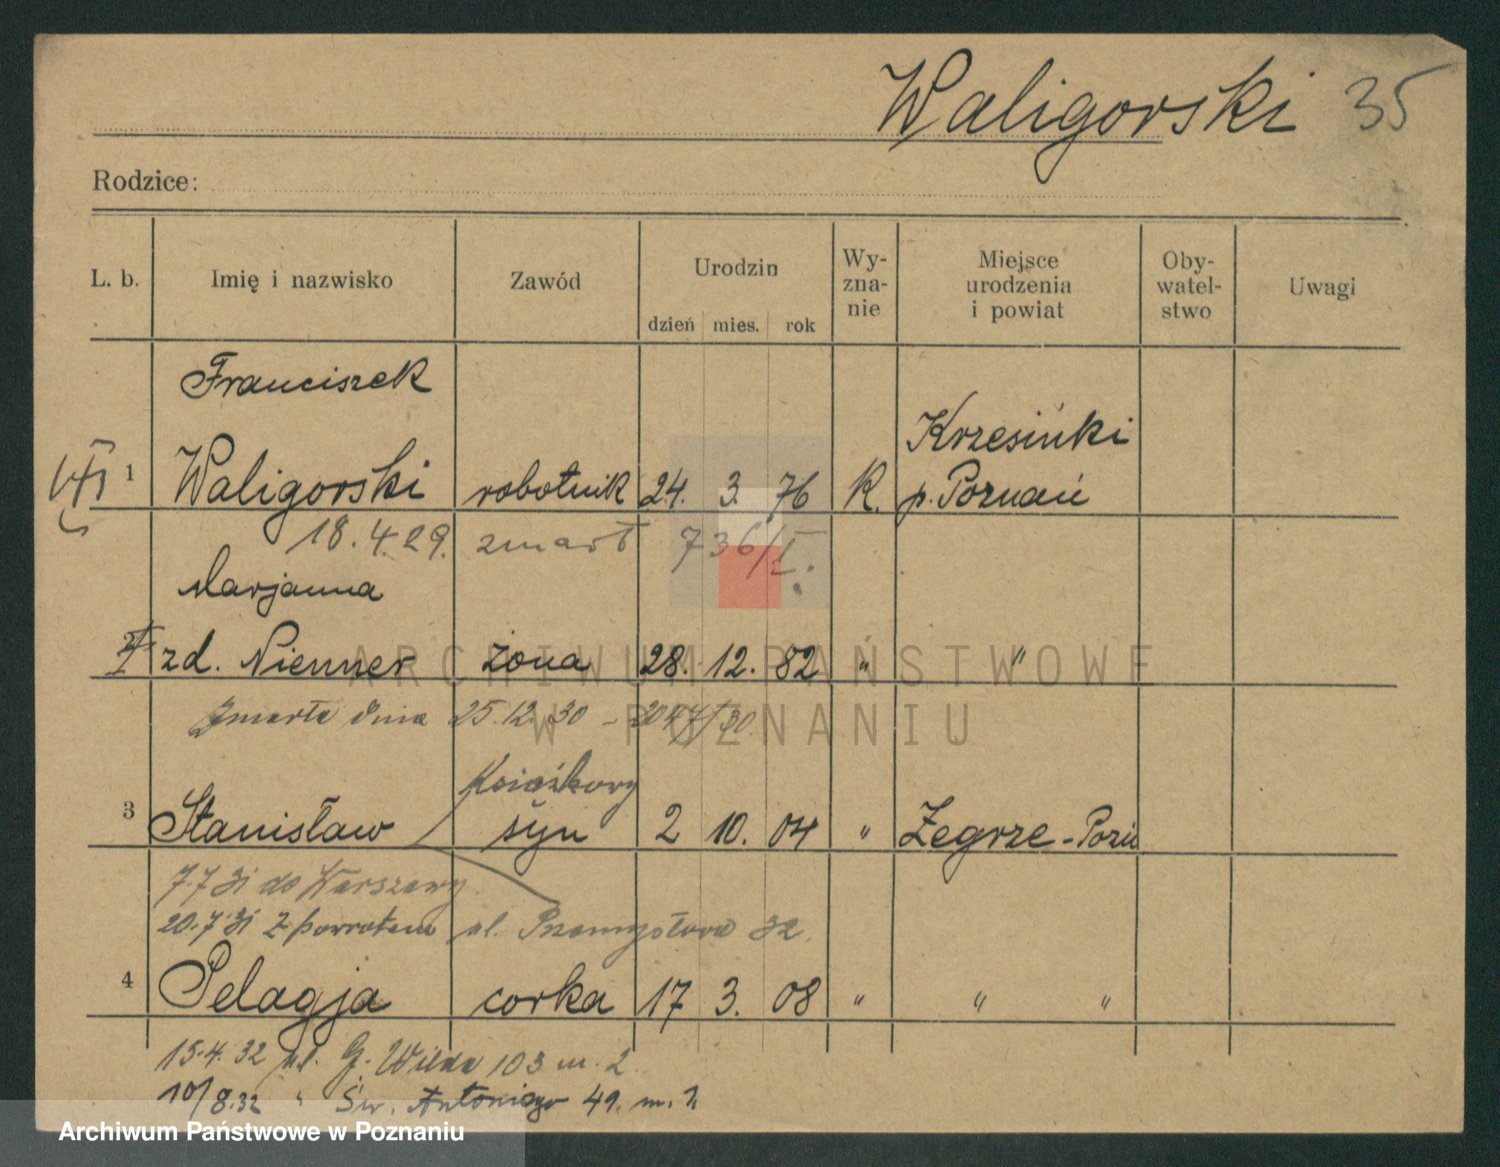 Waligorski 35
Rodzice:
L. b. Imię i nazwisko Zawód Urodzin Wy-zna-nie Miejsce urodzenia i powiat Oby-watel-stwo Uwagi
dzień mies. rok
Franciszek
Krzesinki
1 Waligorski robotnik 24. 3. 76 K. p. Poznań
18. 4. 29. zmarł 736/I.
Marjanna
zd. Niemner żona 28. 12. 82 " "
ARCHIWUM PAŃSTWOWE
W POZNANIU
Zmarła dnia 25. 12. 30
3 Stanisław syn 2 10. 04 " Żegrze - Pozń
7.7 31 do Warszawy
20.7 31 z powrotem ul. Przemysłowa 32.
4 Pelagja corka 17 3. 08 " " "
15.4. 32 ul. G. Wilda 103 m. 2.
10/8.32 " Św. Antoniego 49. m. 2
Archiwum Państwowe w Poznaniu